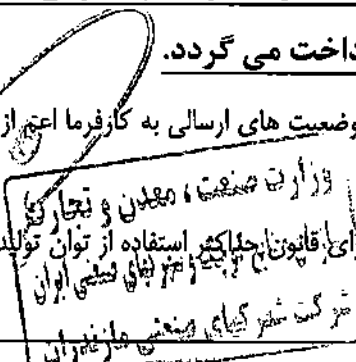 داخت می گردد.
وضعیت های ارسالی به کارفرما اعم از
وزارت صنعت ، معدن و تجارت
ای قانون حداکثر استفاده از توان تولید
شرکت شهرکهای صنعتی مازندران